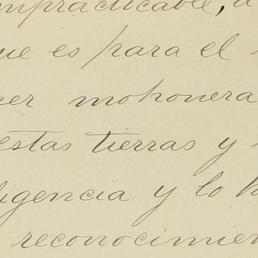 impracticable, a
que es para el
ner mohonera
estas tierras y
ligencia y lo h
reconocimien